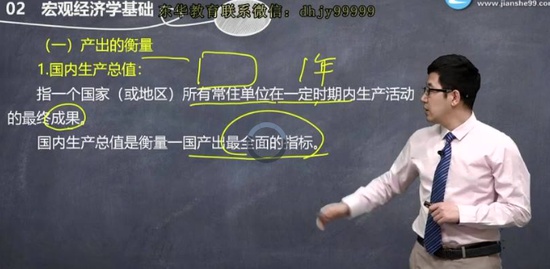 东华教育联系微信：dhjy99999
www.jianshe99.com
02 宏观经济学基础
（一）产出的衡量
1.国内生产总值：
1年
指一个国家（或地区）所有常住单位在一定时期内生产活动
的最终成果。
国内生产总值是衡量一国产出最全面的指标。